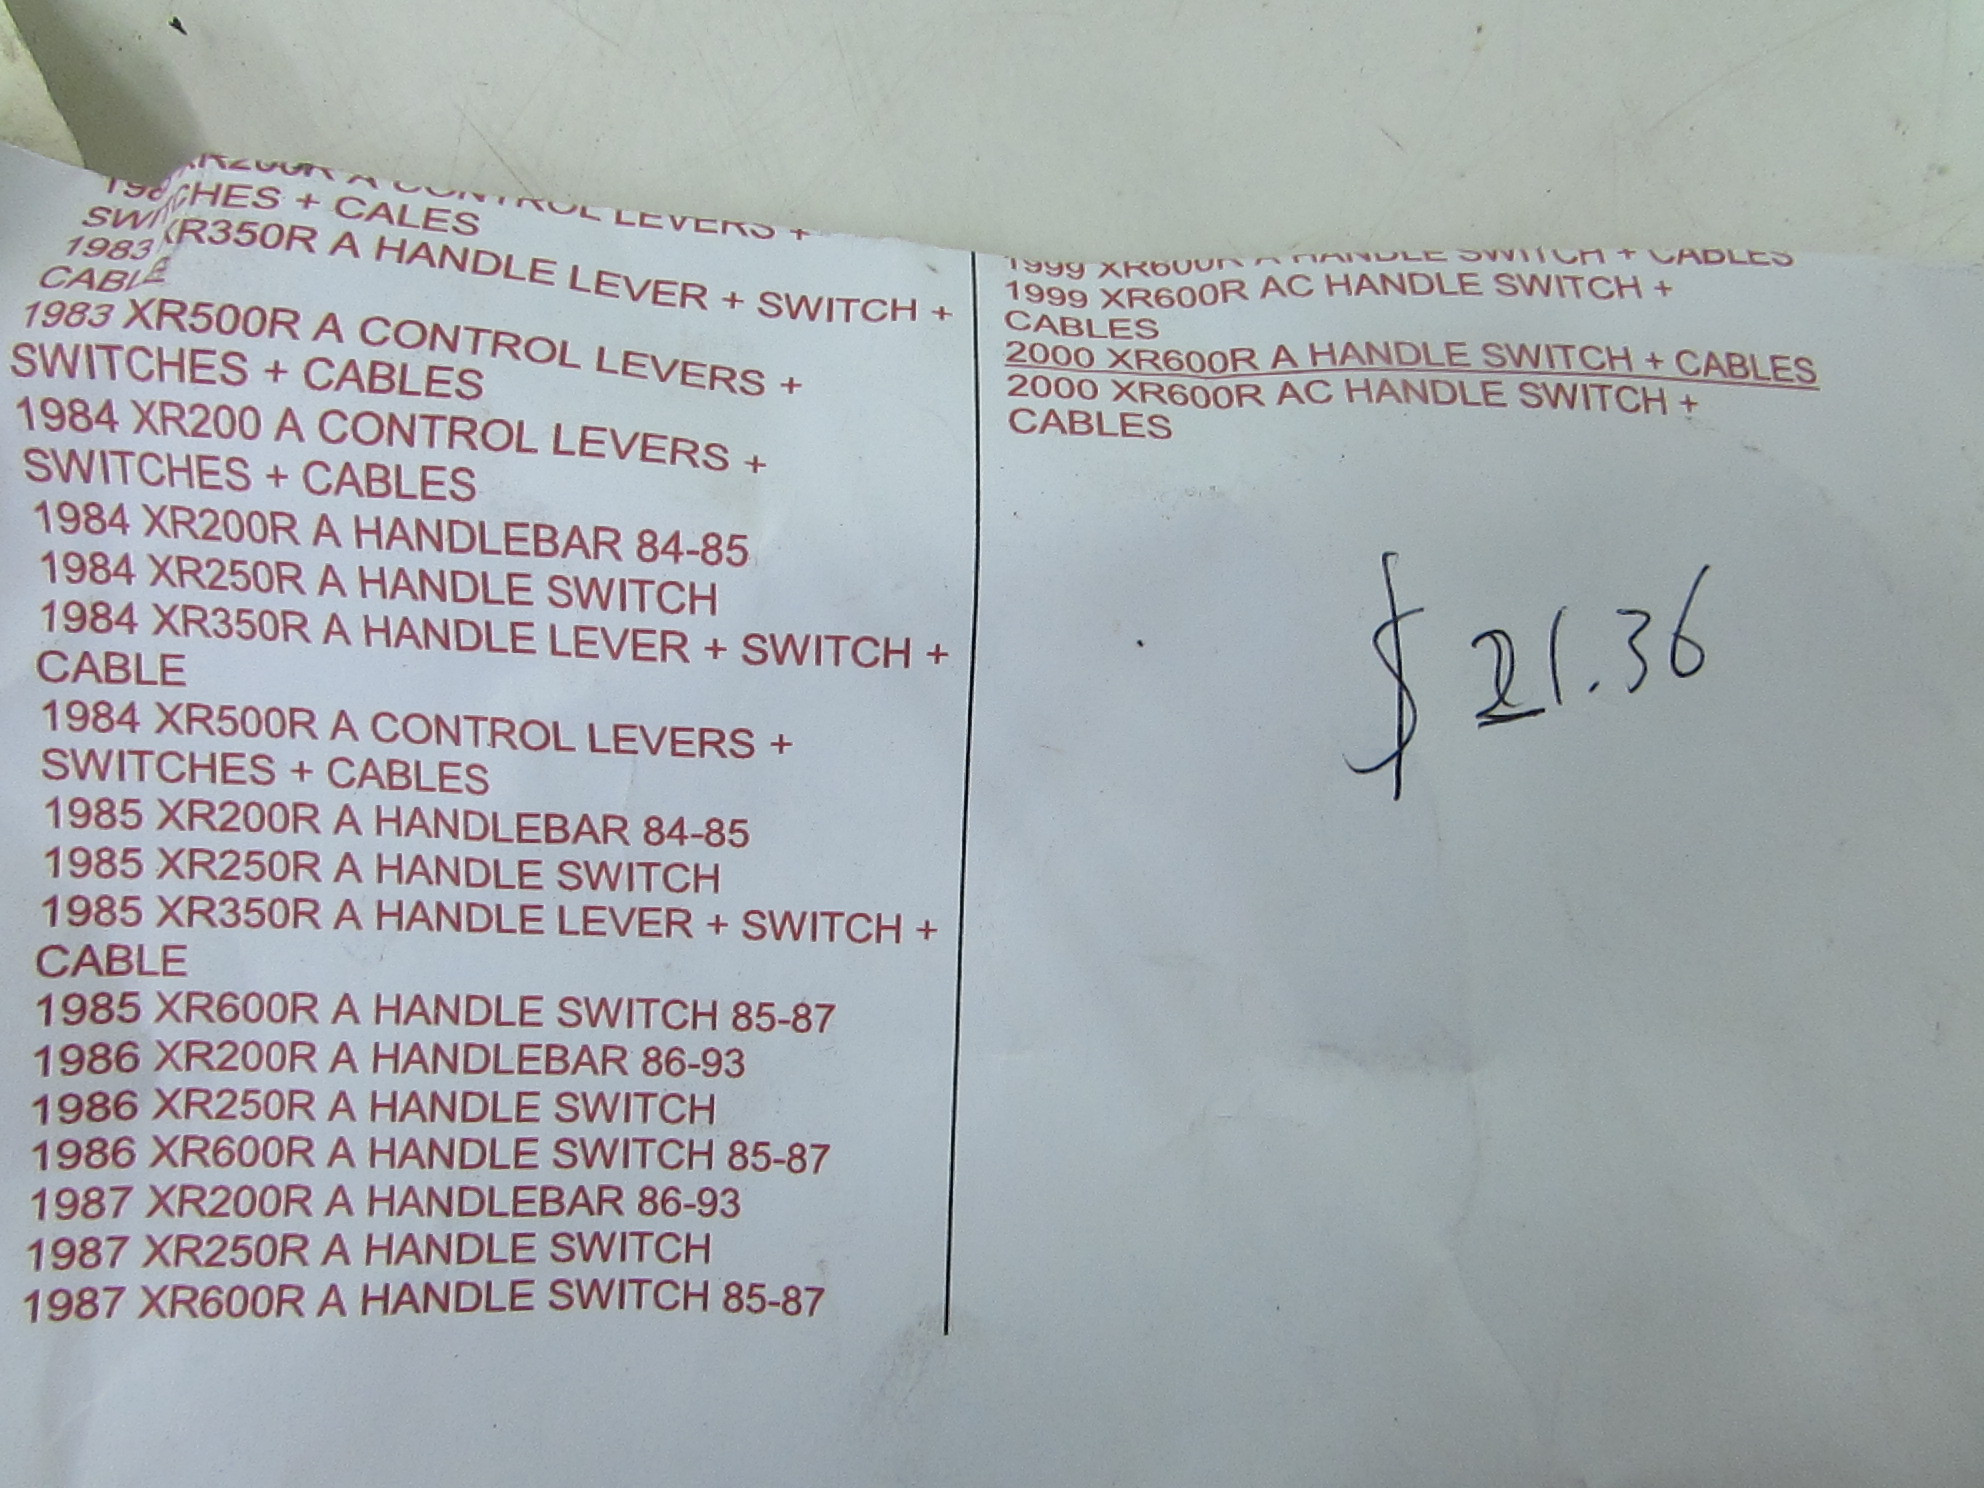 XR200R A CONTROL LEVERS +
SWITCHES + CALES
1983 XR350R A HANDLE LEVER + SWITCH +
CABLE
1983 XR500R A CONTROL LEVERS +
SWITCHES + CABLES
1984 XR200 A CONTROL LEVERS +
SWITCHES + CABLES
1984 XR200R A HANDLEBAR 84-85
1984 XR250R A HANDLE SWITCH
1984 XR350R A HANDLE LEVER + SWITCH +
CABLE
1984 XR500R A CONTROL LEVERS +
SWITCHES + CABLES
1985 XR200R A HANDLEBAR 84-85
1985 XR250R A HANDLE SWITCH
1985 XR350R A HANDLE LEVER + SWITCH +
CABLE
1985 XR600R A HANDLE SWITCH 85-87
1986 XR200R A HANDLEBAR 86-93
1986 XR250R A HANDLE SWITCH
1986 XR600R A HANDLE SWITCH 85-87
1987 XR200R A HANDLEBAR 86-93
1987 XR250R A HANDLE SWITCH
1987 XR600R A HANDLE SWITCH 85-87
1999 XR600R A HANDLE SWITCH + CABLES
1999 XR600R AC HANDLE SWITCH +
CABLES
2000 XR600R A HANDLE SWITCH + CABLES
2000 XR600R AC HANDLE SWITCH +
CABLES
$21.36